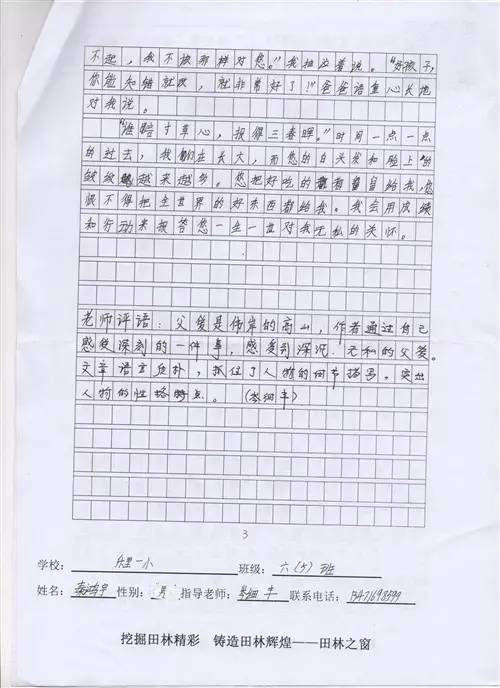 不起，我不该那样对您。"我抽泣着说。"好孩子，
你能知错就改，就非常好了！"爸爸语重心长地
对我说。
"谁踣寸草心，报得三春晖。"时间一点一点
的过去，我们在长大，而您的白头发和脸上的
皱纹越来越多。您把好吃的都留给我，您
恨不得把全世界的好东西都给我。我会用成绩
和行动来报答您一生一世对我无私的关怀。
老师评语：父爱是伟岸的高山，作者通过自己
感受深刻的一件事，感受到深沉、无私的父爱。
文章语言质朴，抓住了人物的细节描写，突出
人物的性格特点。（岑细丰）
3
学校：乐里一小 班级：六（5）班
姓名： 性别：男 指导老师：岑细丰 联系电话：13471698599
挖掘田林精彩 铸造田林辉煌——田林之窗